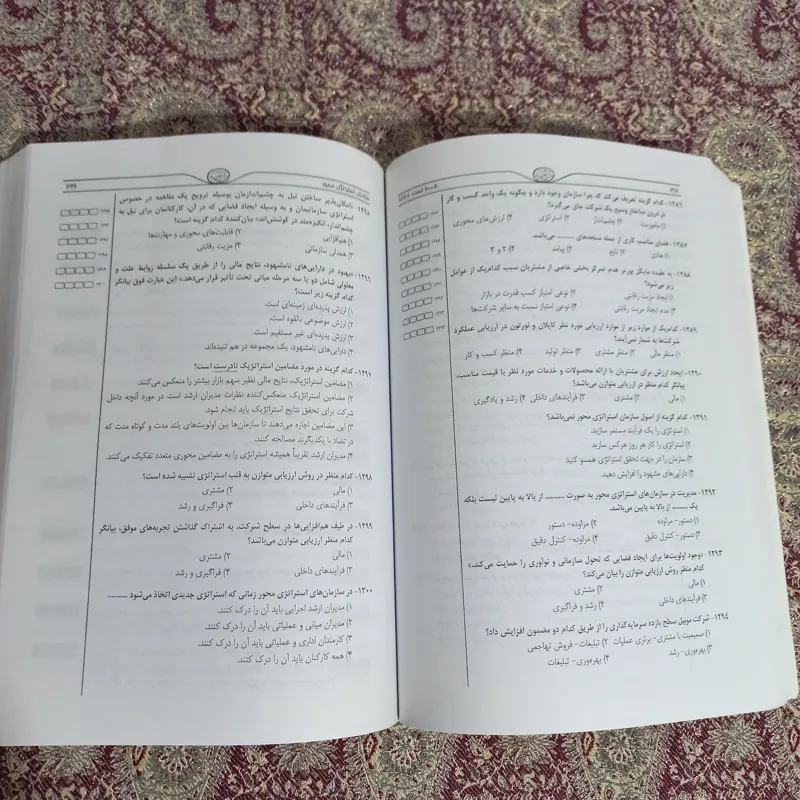 ۶۰۰۸ تست MBA
۱۲۸۶- کدام گزینه تعریف می‌کند که چرا سازمان وجود دارد و چگونه یک واحد کسب و کار
در درون ساختار وسیع یک شرکت جای می‌گیرد؟
۱) ماموریت ۲) چشم‌انداز ۳) استراتژی ۴) ارزش‌های محوری
۱۲۸۷- فضای مناسب کاری از جمله سنجه‌های ........ می‌باشد.
۱) هادی ۲) تابع ۳) پیامد ۴) ۲ و ۳
۱۲۸۸- به عقیده مایکل پورتر عدم تمرکز بخشی خاصی از مشتریان سبب کدام‌یک از عوامل
زیر می‌شود؟
۱) ایجاد مزیت رقابتی ۲) نوعی امتیاز کسب قدرت در بازار
۳) عدم ایجاد مزیت رقابتی ۴) نوعی امتیاز نسبت به سایر شرکت‌ها
۱۲۸۹- کدام‌یک از موارد زیر از موارد ارزیابی مورد نظر کاپلان و نورتون در ارزیابی عملکرد
شرکت‌ها به شمار نمی‌آیند؟
۱) منظر مالی ۲) منظر مشتری ۳) منظر تولید ۴) منظر کسب و کار
۱۲۹۰- ایجاد ارزش برای مشتریان با ارائه محصولات و خدمات مورد نظر با قیمت مناسب،
بیانگر کدام منظر در ارزیابی متوازن می‌باشد؟
۱) مالی ۲) مشتری ۳) فرآیندهای داخلی ۴) رشد و یادگیری
۱۲۹۱- کدام گزینه از اصول سازمان استراتژی محور نمی‌باشد؟
۱) استراتژی را یک فرآیند مستمر سازید.
۲) استراتژی را کار هر روز هر کس سازید.
۳) سازمان را در جهت تحقق استراتژی همسو کنید
۴) دارایی‌های مشهود را افزایش دهید.
۱۲۹۲- مدیریت در سازمان‌های استراتژی محور به صورت ........ از بالا به پایین نیست بلکه
یک ........ از بالا به پایین می‌باشد.
۱) دستور – مراوده ۲) مراوده – دستور
۳) دستور – کنترل دقیق ۴) مراوده – کنترل دقیق
۱۲۹۳- «وجود اولویت‌ها برای ایجاد فضایی که تحول سازمانی و نوآوری را حمایت می‌کند.»
کدام منظر روش ارزیابی متوازن را بیان می‌کند؟
۱) مالی ۲) مشتری
۳) فرآیندهای داخلی ۴) رشد و فراگیری
۱۲۹۴- شرکت موبیل سطح بازده سرمایه‌گذاری را از طریق کدام دو مضمون افزایش داد؟
۱) صمیمیت با مشتری – برتری عملیات ۲) تبلیغات – فروش تهاجمی
۳) بهره‌وری – رشد ۴) بهره‌وری – تبلیغات
۶۹۹
۱۲۹۵- «امکان‌پذیر ساختن نیل به چشم‌اندازمان بوسیله ترویج یک مفاهمه در خصوص
استراتژی سازمانیمان و به وسیله ایجاد فضایی که در آن، کارکنانمان برای نیل به
چشم‌انداز، انگیزه‌مند در کوشش‌اند» بیان‌کنندهٔ کدام گزینه است؟
۱) هم‌افزایی ۲) قابلیت‌های محوری و مهارت‌ها
۳) همدلی سازمانی ۴) مزیت رقابتی
۱۲۹۶- «بهبود در دارایی‌های نامشهود، نتایج مالی را از طریق یک سلسله روابط علت و
معلولی شامل دو یا سه مرحله میانی تحت تأثیر قرار می‌دهد.» این عبارت فوق بیانگر
کدام گزینه زیر است؟
۱) ارزش پدیده‌ای زمینه‌ای است.
۲) ارزش موضوعی بالقوه است.
۳) ارزش پدیده‌ای غیر مستقیم است.
۴) دارایی‌های نامشهود، یک مجموعه در هم تنیده‌اند.
۱۲۹۷- کدام گزینه در مورد مضامین استراتژیک نادرست است؟
۱) مضامین استراتژیک، نتایج مالی نظیر سهم بازار بیشتر را منعکس می‌کنند.
۲) مضامین استراتژیک منعکس‌کننده نظرات مدیران ارشد است در مورد آنچه داخل
شرکت برای تحقق نتایج استراتژیک باید انجام شود.
۳) این مضامین اجازه می‌دهند تا سازمان‌ها بین اولویت‌های بلند مدت و کوتاه مدت که
در تضاد با یکدیگرند مصالحه کنند.
۴) مدیران ارشد تقریباً همیشه استراتژی را به مضامین محوری متعدد تفکیک می‌کنند.
۱۲۹۸- کدام منظر در روش ارزیابی متوازن به قلب استراتژی تشبیه شده است؟
۱) مالی ۲) مشتری
۳) فرآیندهای داخلی ۴) فراگیری و رشد
۱۲۹۹- در طیف هم‌افزایی‌ها در سطح شرکت، به اشتراک گذاشتن تجربه‌های موفق، بیانگر
کدام منظر ارزیابی متوازن می‌باشد؟
۱) مالی ۲) مشتری
۳) فرآیندهای داخلی ۴) فراگیری و رشد
۱۳۰۰- در سازمان‌های استراتژی محور زمانی که استراتژی جدیدی اتخاذ می‌شود ..........
۱) مدیران ارشد اجرایی باید آن را درک کنند.
۲) مدیران میانی و عملیاتی باید آن را درک کنند.
۳) کارمندان اداری و عملیاتی باید آن را درک کنند.
۴) همه کارکنان باید آن را درک کنند.